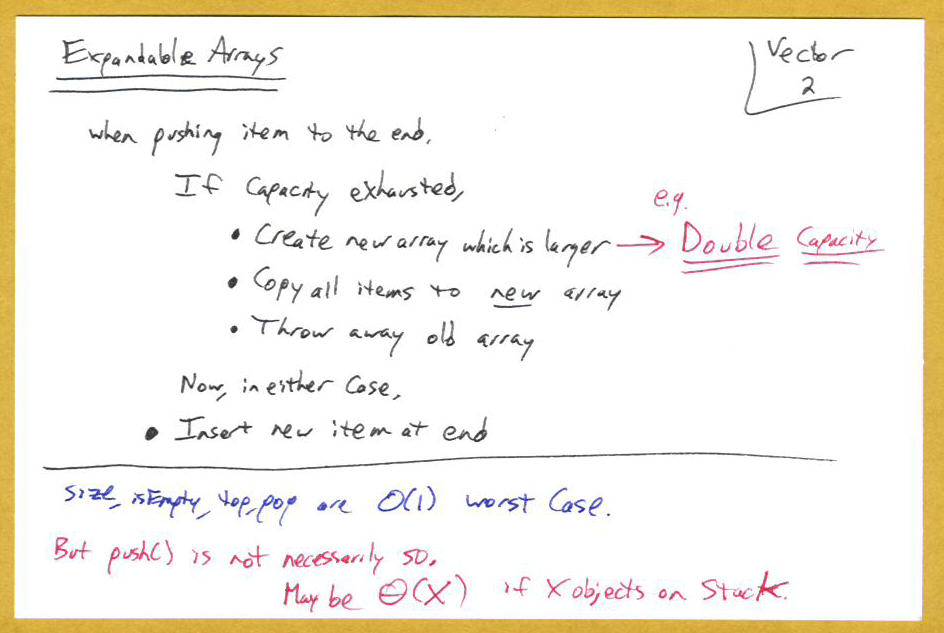 Expandable Arrays
Vector
2
when pushing item to the end,
If Capacity exhausted,
e.g.
• Create new array which is larger → Double Capacity
• Copy all items to new array
• Throw away old array
Now, in either Case,
• Insert new item at end
size, isEmpty, top, pop are O(1) worst Case.
But push() is not necessarily so,
May be Θ(X) if X objects on Stack.